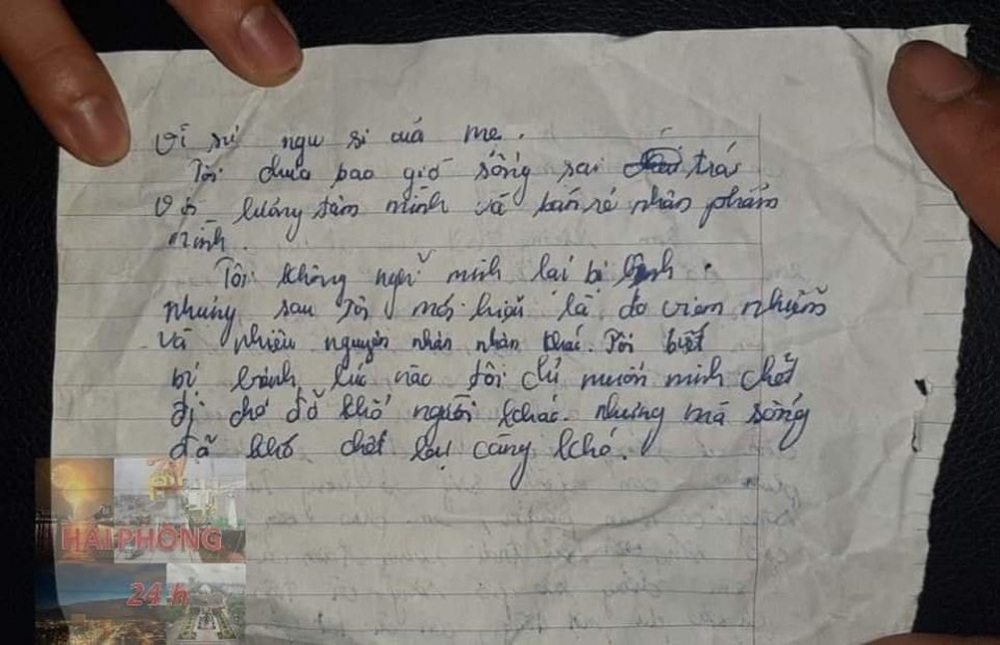 vì sự ngu si của mẹ.
Tôi chưa bao giờ sống sai trái
với lương tâm mình và bán rẻ nhân phẩm
mình.
Tôi không nghĩ mình lại bị bệnh.
nhưng sau tôi mới hiểu là do viêm nhiễm
và nhiều nguyên nhân nhân khác. Tôi biết
bị bệnh lúc nào tôi chỉ muốn mình chết
đi cho đỡ khổ người khác. nhưng mà sống
đã khổ chết lại càng khó.
HẢI PHÒNG
24h